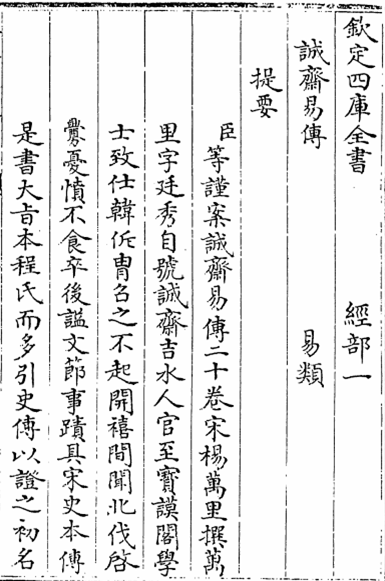 欽定四庫全書 經部一
誠齋易傳 易類
提要
臣等謹案誠齋易傳二十卷宋楊萬里撰萬
里字廷秀自號誠齋吉水人官至寳謨閣學
士致仕韓侂胄召之不起開禧間聞北伐啓
釁憂憤不食卒後諡文節事蹟具宋史本傳
是書大旨本程氏而多引史傳以證之初名